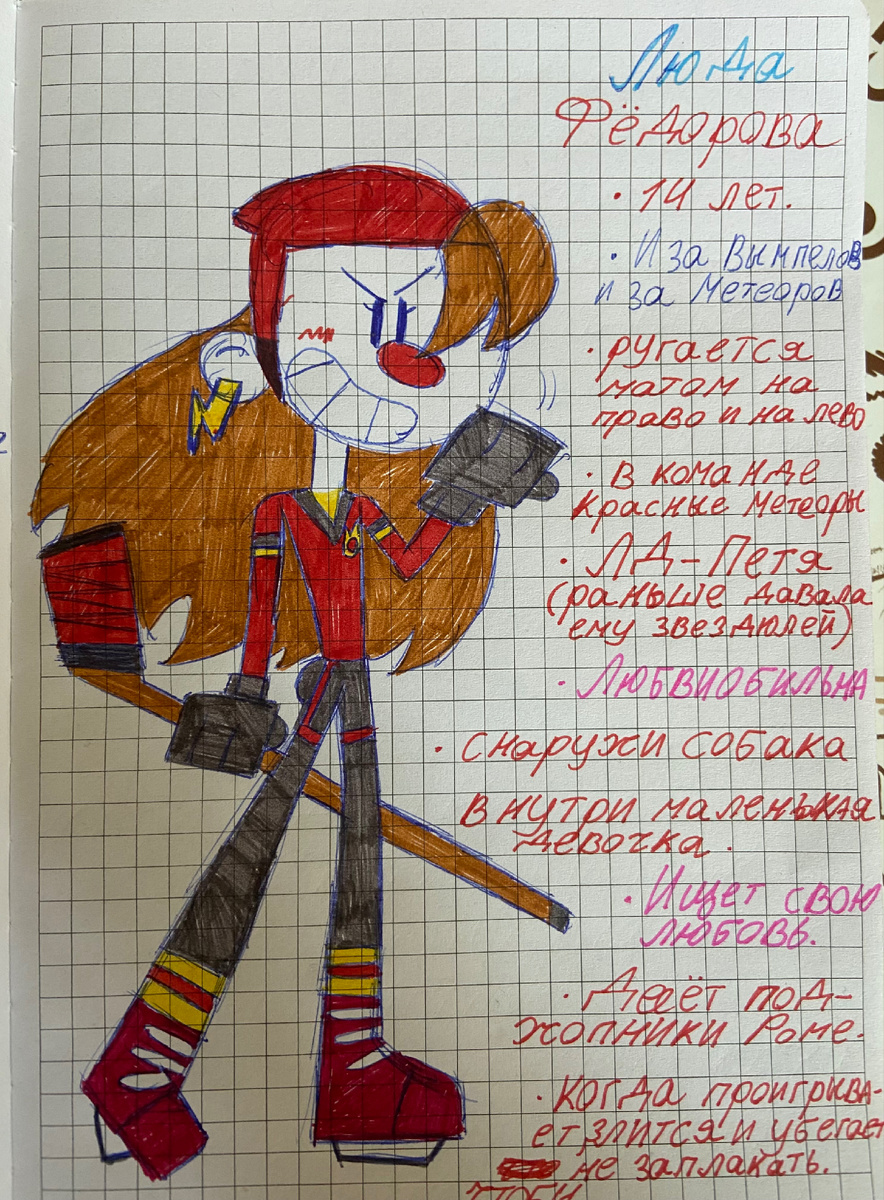 Люда
Фёдорова
• 14 лет.
• И за Вымпелов
и за Метеоров
• ругается
матом на
право и на лево
• в команде
Красные Метеоры
• ЛД-Петя
(раньше давала
ему звездюлей)
• Любвиобильна
• снаружи собака
внутри маленькая
девочка.
• Ищет свою
любовь.
• Даёт под-
жопники Роме.
• когда проигрыва-
ет, злится и убегает
не заплакать.
чтоби